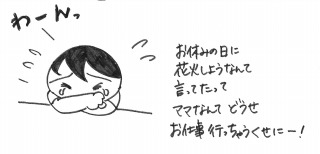 わーんっ
お休みの日に
花火しようなんて
言てたって
ママなんて どうせ
お仕事行っちゃうくせにー!